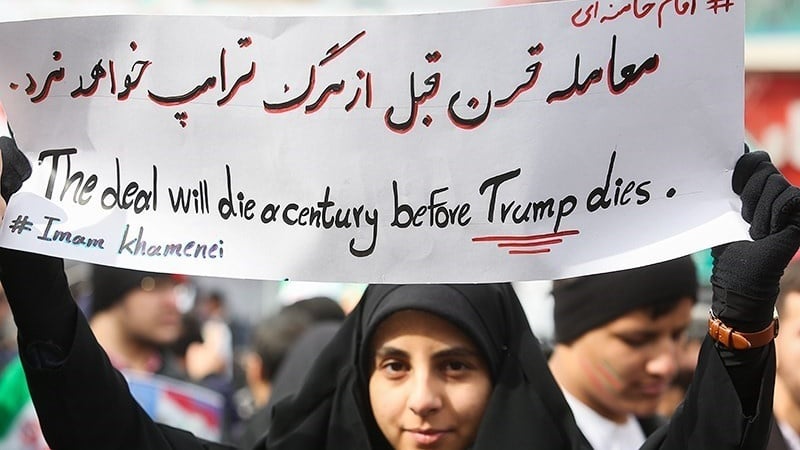 # امام خامنه ای
معامله قرن قبل از مرگ ترامپ خواهد مرد.
The deal will die a century before Trump dies.
# Imam khamenei